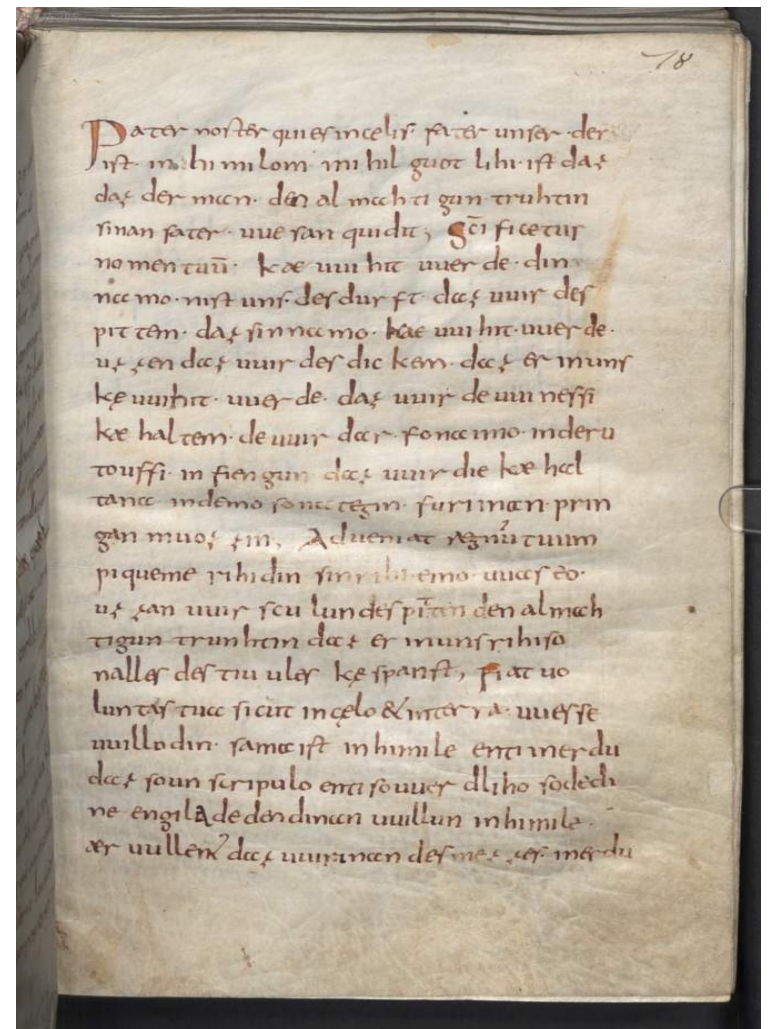 78
Pater noster qui es in celis. fater unser der
ist in himilom. mihhil guot lihi ist daz
daz der man. den al mahti gun truhtin
sinan fater. uue san quidit, Sc̄i ficetur
nomen tuū. kae uui hit uuer de. din
na mo. nist uns. des durft. daz uuir des
pit tem. daz sin na mo. kae uui hit. uuer de.
uz zen daz uuir des dic kem. daz er in uns
kę uuihit. uuer de. daz uuir de uui nessi
kae hal tem. de uuir dar. fona imo. in deru
touffi. in fien gun daz uuir die kae hal
tana in demo sona tegin. furi inan prin
gan muoz zin, Adveniat regnū tuum
piqueme rihi din sin rihi emo. uuas eo.
uz zan uuir scu lun des pitten den almah
tigun truhtin daz er in uns rihiso
nalles des tiu ules kę spanst, Fiat uo
luntas tua sicut in cęlo & in terra. uuesse
uuillo din. sama ist in himile enti in erdu
daz so un scripulo enti so uuer dliho so de di
ne engila de den dinan uuillun in himile.
aer uullent daz uuir inan des mez zes. in erdu